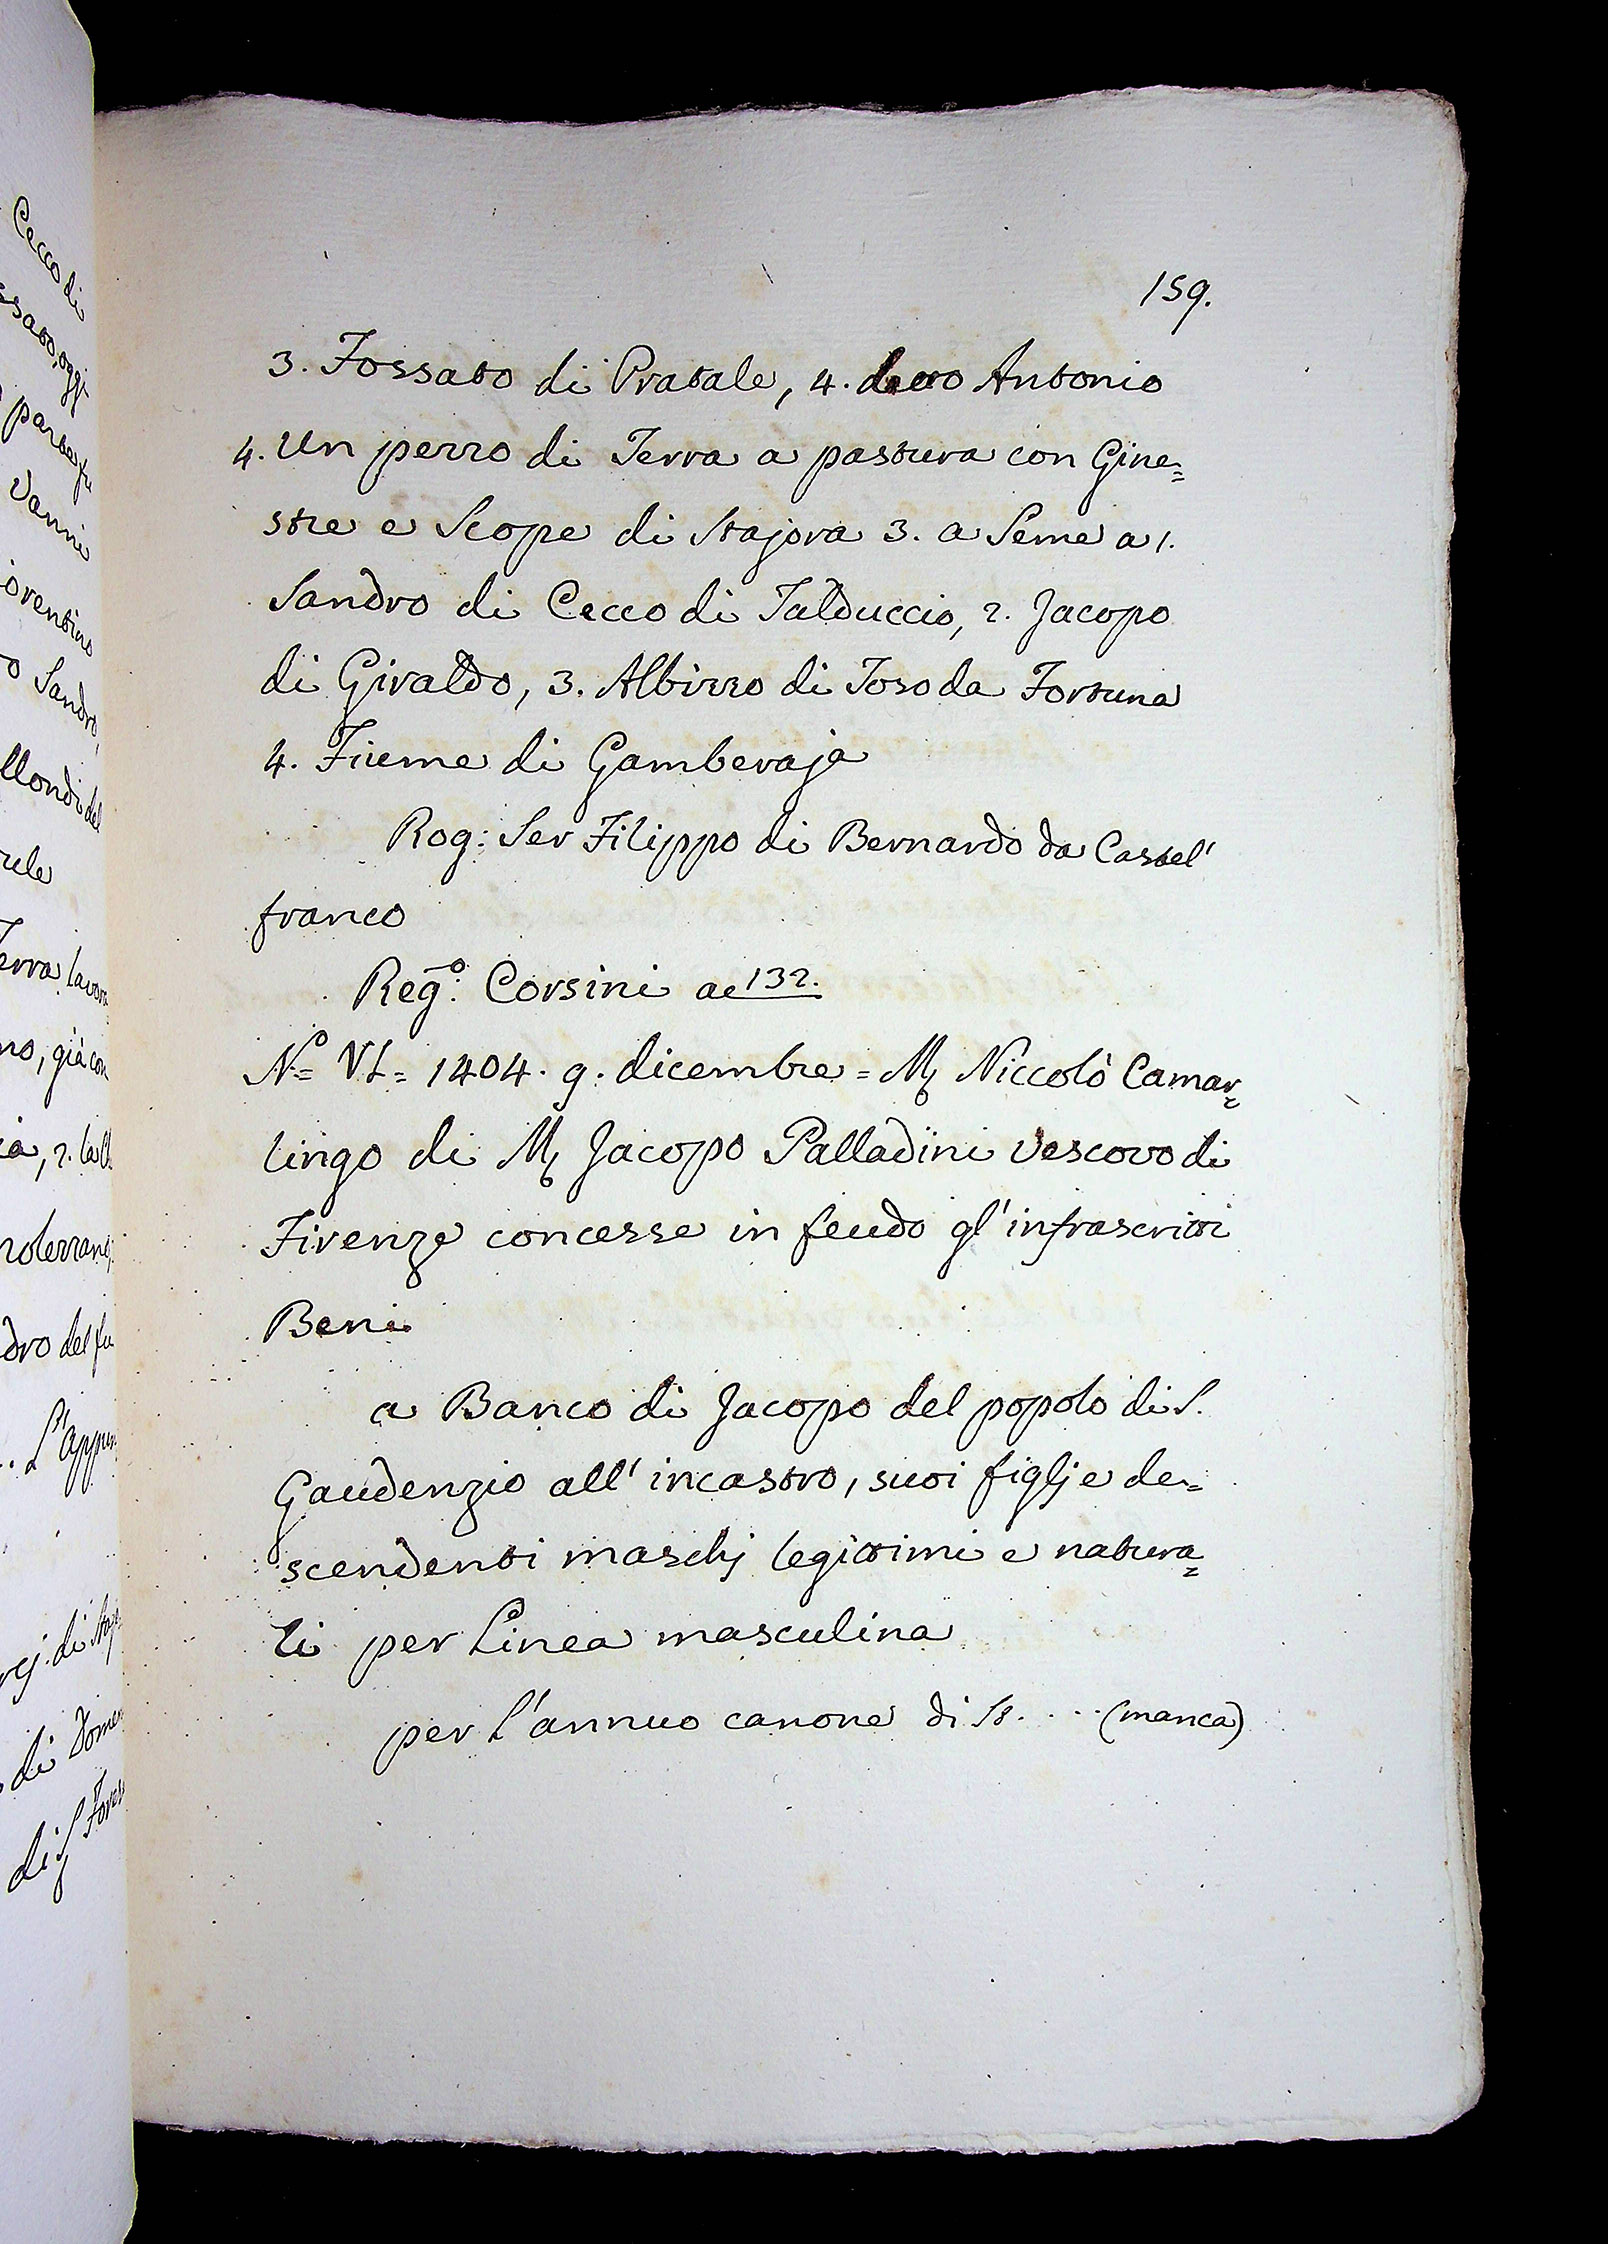 Cecco di
ssato, oggi
parte fu
Vanni
iorentino
o Sandro,
llondi del
rule
Terra lavora
no, già con
ia, 2. la Ch
noterrang:
dro del fu
L'appun
rej. di Staj
di Domen
di S. Fores
159.
3. Fossato di Pratale, 4. detto Antonio
4. Un pezzo di Terra a pastura con Gine=
stre e Scope di Stajora 3. a Seme a 1.
Sandro di Cecco di Talduccio, 2. Jacopo
di Giraldo, 3. Albizzo di Toso da Fortuna
4. Fiume di Gamberaja
Rog: Ser Filippo di Bernardo da Castel'
franco
Reg.º Corsini ac 132.
Nº= VI= 1404. 9. dicembre = M. Niccolò Camar=
lingo di M. Jacopo Palladini Vescovo di
Firenze concesse in feudo gl'infrascritti
Beni
a Banco di Jacopo del popolo di S.
Gaudenzio all'incastro, suoi figlj e de=
scendenti maschj legittimi e natura=
li per Linea masculina
per l'annuo canone di St. . . . (manca)